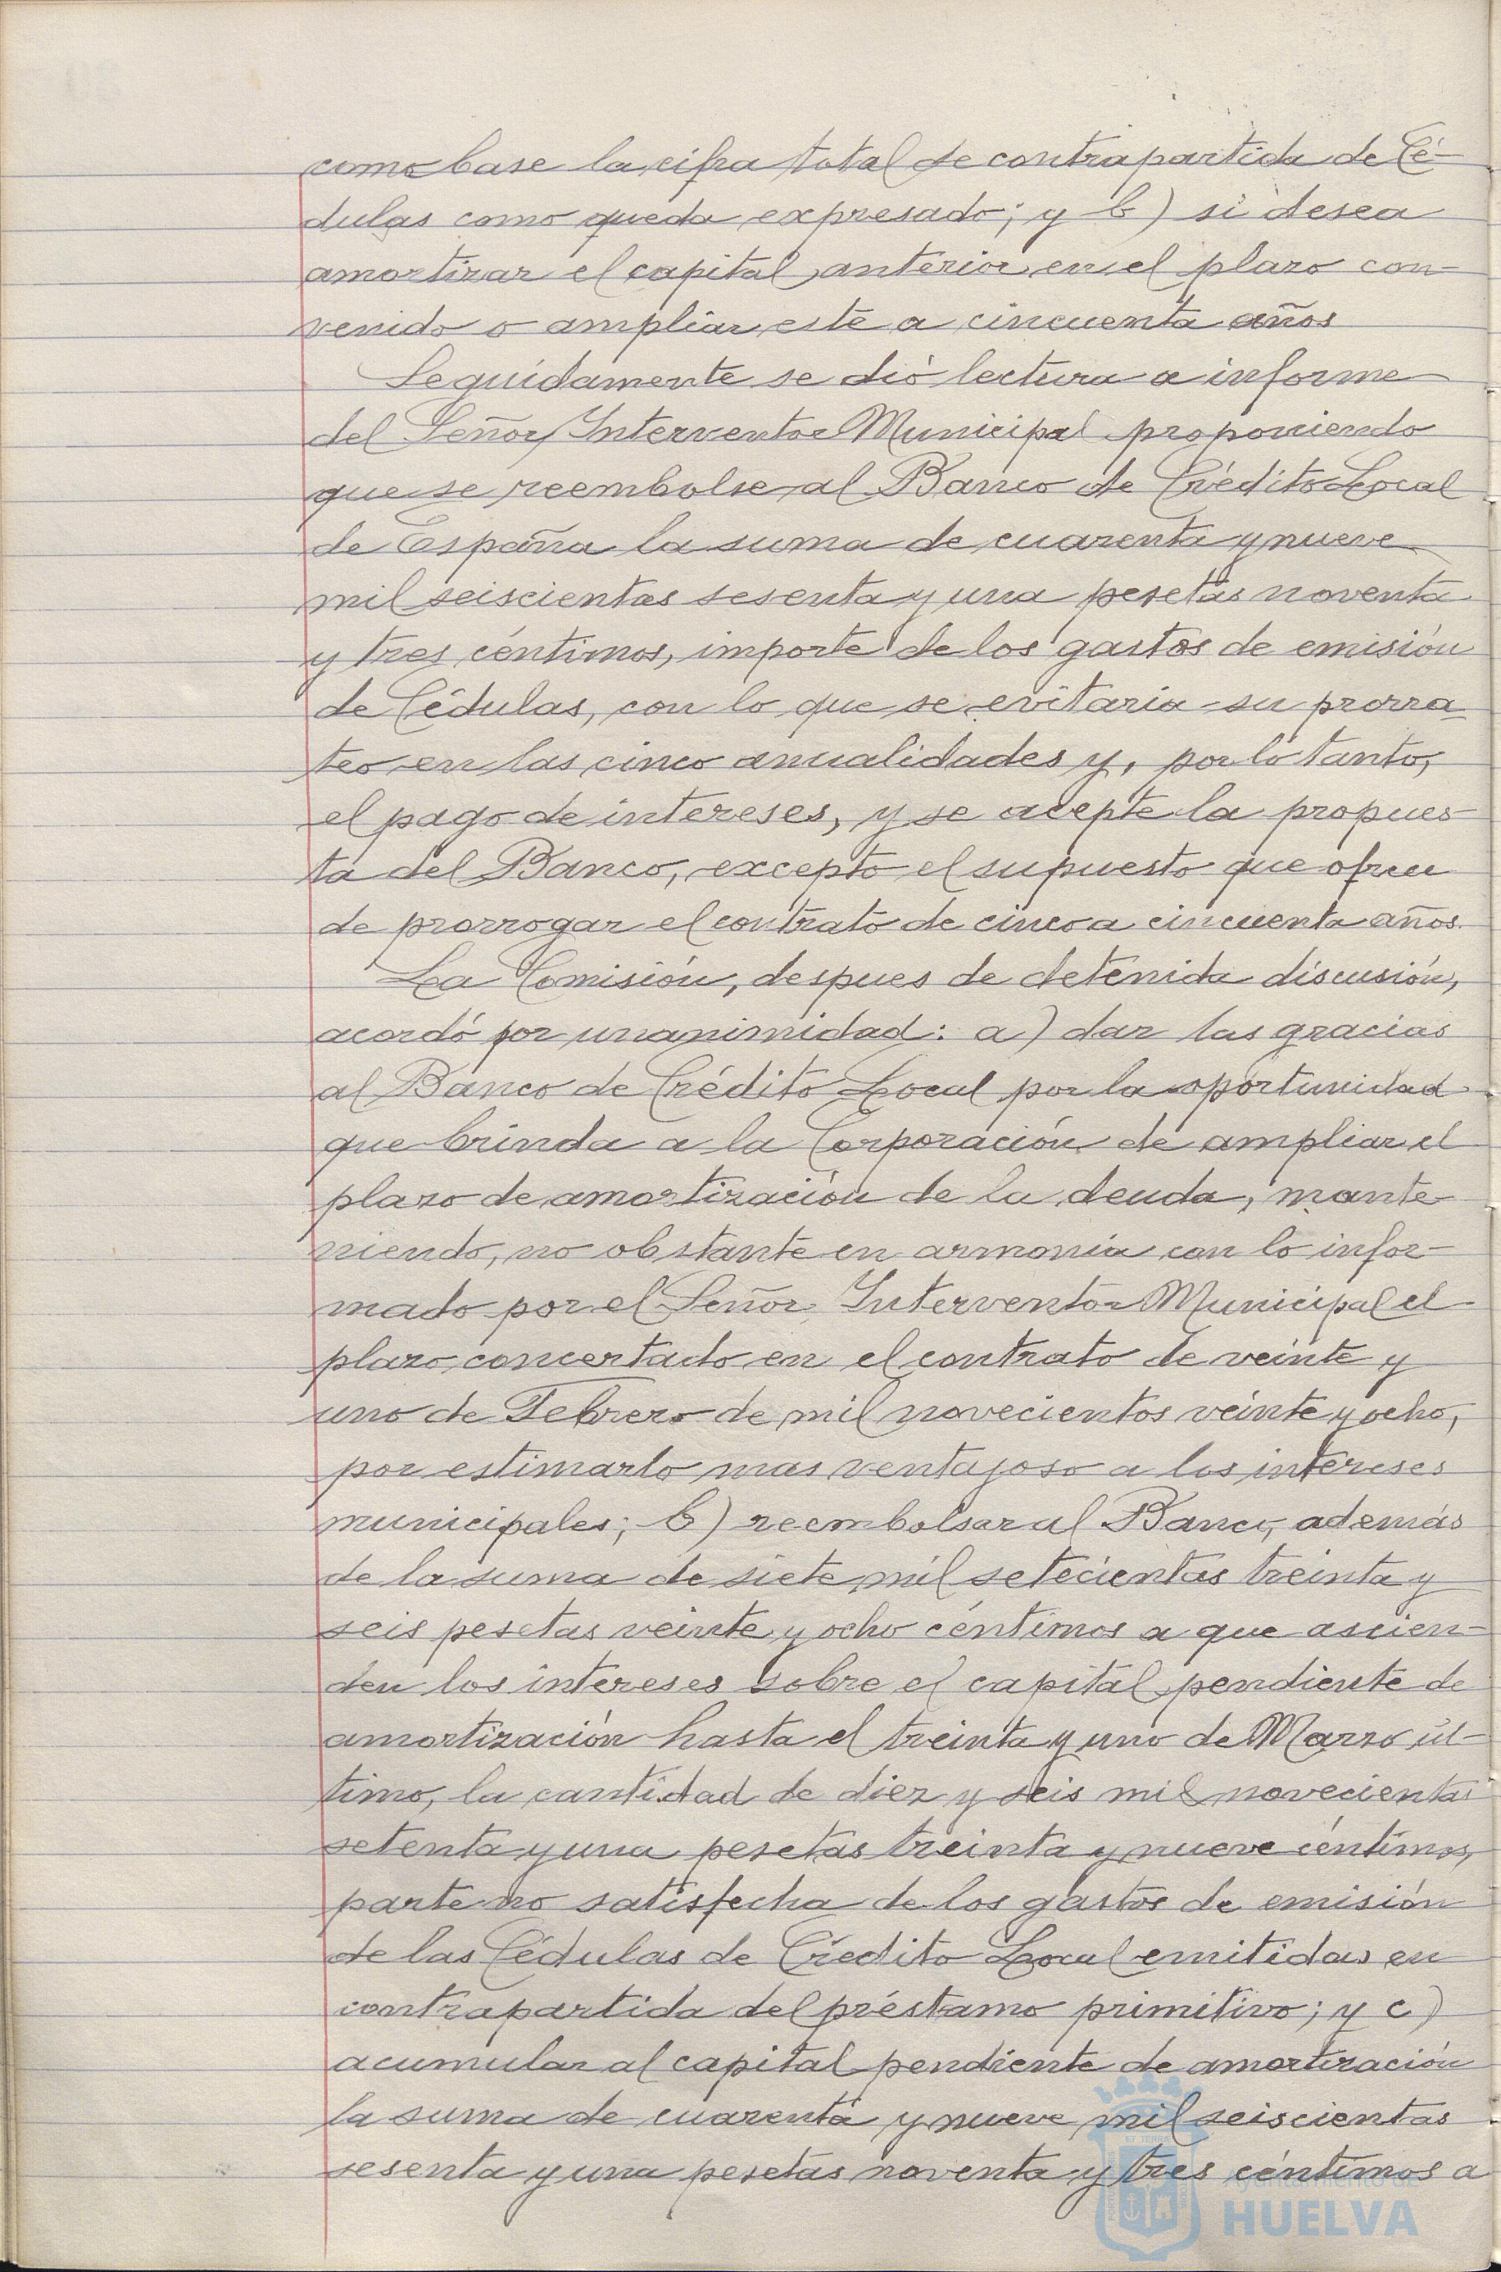 como base la cifra total de contrapartida de Cé-
dulas como queda expresado; y b) si desea
amortizar el capital anterior en el plazo con-
venido o ampliar este a cincuenta años
Seguidamente se dió lectura a informe
del Señor Interventor Municipal proponiendo
que se reembolse al Banco de Crédito Local
de España la suma de cuarenta y nueve
mil seiscientas sesenta y una pesetas noventa
y tres céntimos, importe de los gastos de emisión
de Cédulas, con lo que se evitaria su prorra-
teo en las cinco anualidades y, por lo tanto,
el pago de intereses, y se acepte la propues-
ta del Banco, excepto el supuesto que ofrece
de prorrogar el contrato de cinco a cincuenta años.
La Comisión, despues de detenida discusión,
acordó por unanimidad: a) dar las gracias
al Banco de Crédito Local por la oportunidad
que brinda a la Corporación de ampliar el
plazo de amortización de la deuda, mante-
niendo, no obstante en armonía con lo infor-
mado por el Señor Interventor Municipal el
plazo concertado en el contrato de veinte y
uno de Febrero de mil novecientos veinte y ocho,
por estimarlo mas ventajoso a los intereses
municipales; b) reembolsar al Banco, además
de la suma de siete mil setecientas treinta y
seis pesetas veinte y ocho céntimos a que ascien-
den los intereses sobre el capital pendiente de
amortización hasta el treinta y uno de Marzo úl-
timo, la cantidad de diez y seis mil novecientas
setenta y una pesetas treinta y nueve céntimos,
parte no satisfecha de los gastos de emisión
de las Cédulas de Crédito Local emitidas en
contrapartida del préstamo primitivo; y c)
acumular al capital pendiente de amortización
la suma de cuarenta y nueve mil seiscientas
sesenta y una pesetas noventa y tres céntimos a
Ayuntamiento de
HUELVA